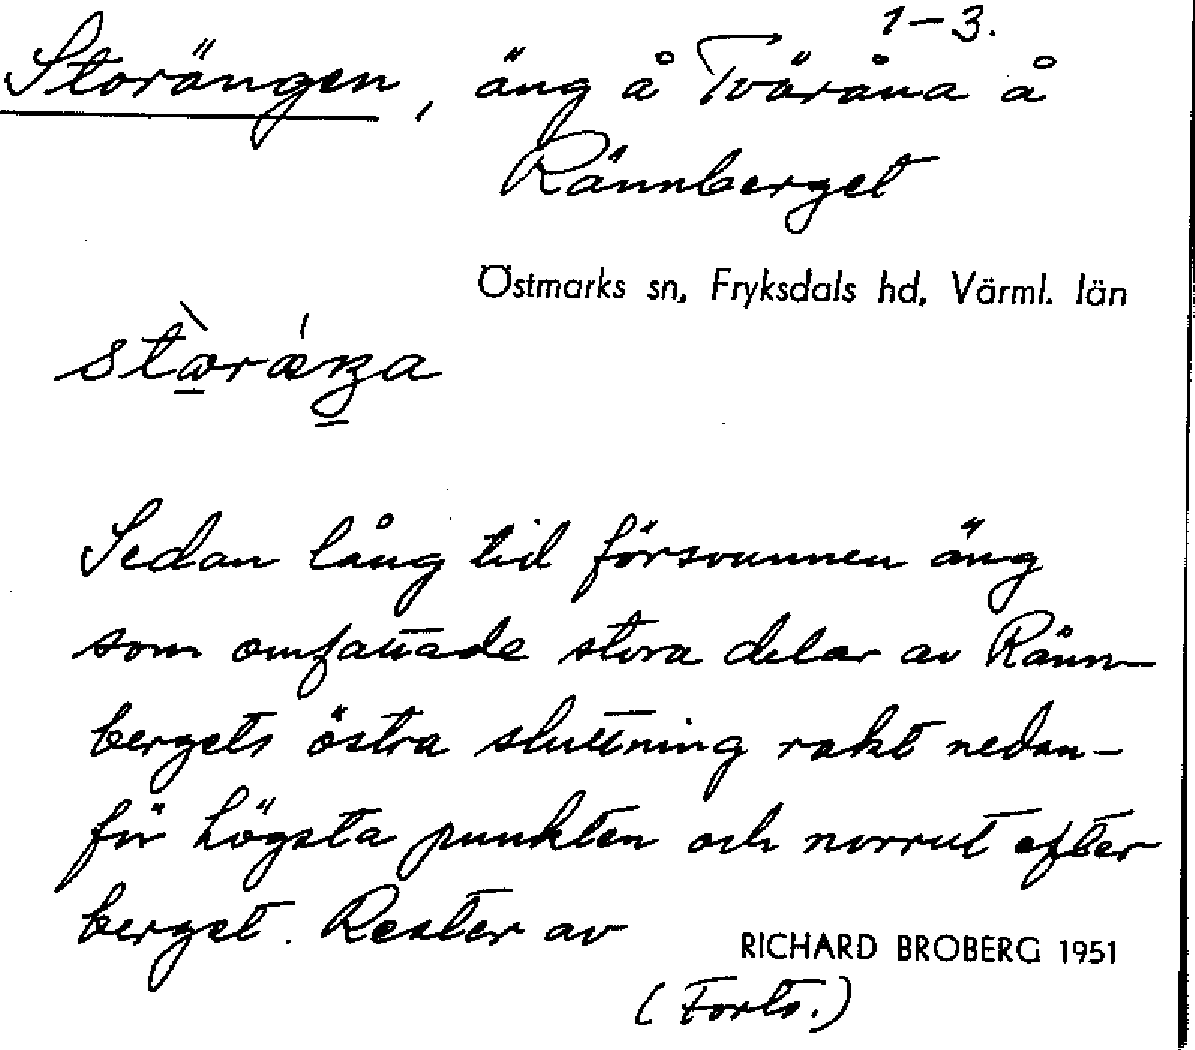 1-3.
Storängen, äng å Tväråna å
Rännberget
Östmarks sn, Fryksdals hd, Värml. län
Sedan lång tid försvunnen äng
som omfattade stora delar av Ränn-
bergets östra sluttning rakt nedan-
för högsta punkten och norrut efter
berget. Rester av
RICHARD BROBERG 1951
(Forts.)